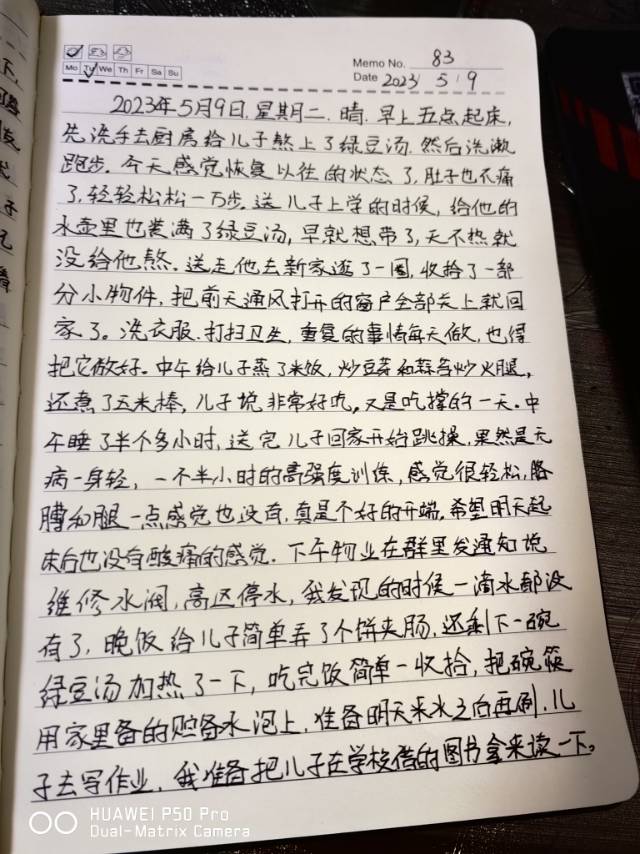 Memo No. 83
Mo Tu We Th Fr Sa Su
Date 2023 5 9
2023年5月9日,星期二.晴.早上五点起床,
先洗手去厨房给儿子熬上了绿豆汤.然后洗漱
跑步.今天感觉恢复以往的状态了,肚子也不痛
了,轻轻松松一万步.送儿子上学的时候,给他的
水壶里也装满了绿豆汤,早就想带了,天不热就
没给他熬.送走他去新家逛了一圈,收拾了一部
分小物件,把前天通风打开的窗户全部关上就回
家了。洗衣服.打扫卫生,重复的事情每天做,也得
把它做好。中午给儿子蒸了米饭,炒豆芽和蒜苔炒火腿,
还煮了玉米棒,儿子说非常好吃,又是吃撑的一天.中
午睡了半个多小时,送完儿子回家开始跳操,果然是无
病一身轻,一个半小时的高强度训练,感觉很轻松,胳
膊和腿一点感觉也没有,真是个好的开端.希望明天起
床后也没有酸痛的感觉.下午物业在群里发通知说
维修水阀,高区停水,我发现的时候一滴水都没
有了,晚饭给儿子简单弄了个饼夹肠,还剩下一碗
绿豆汤加热了一下,吃完饭简单一收拾,把碗筷
用家里备的贮备水泡上,准备明天来水之后再刷.儿
子去写作业,我准备把儿子在学校借的图书拿来读一下。
HUAWEI P50 Pro
Dual-Matrix Camera